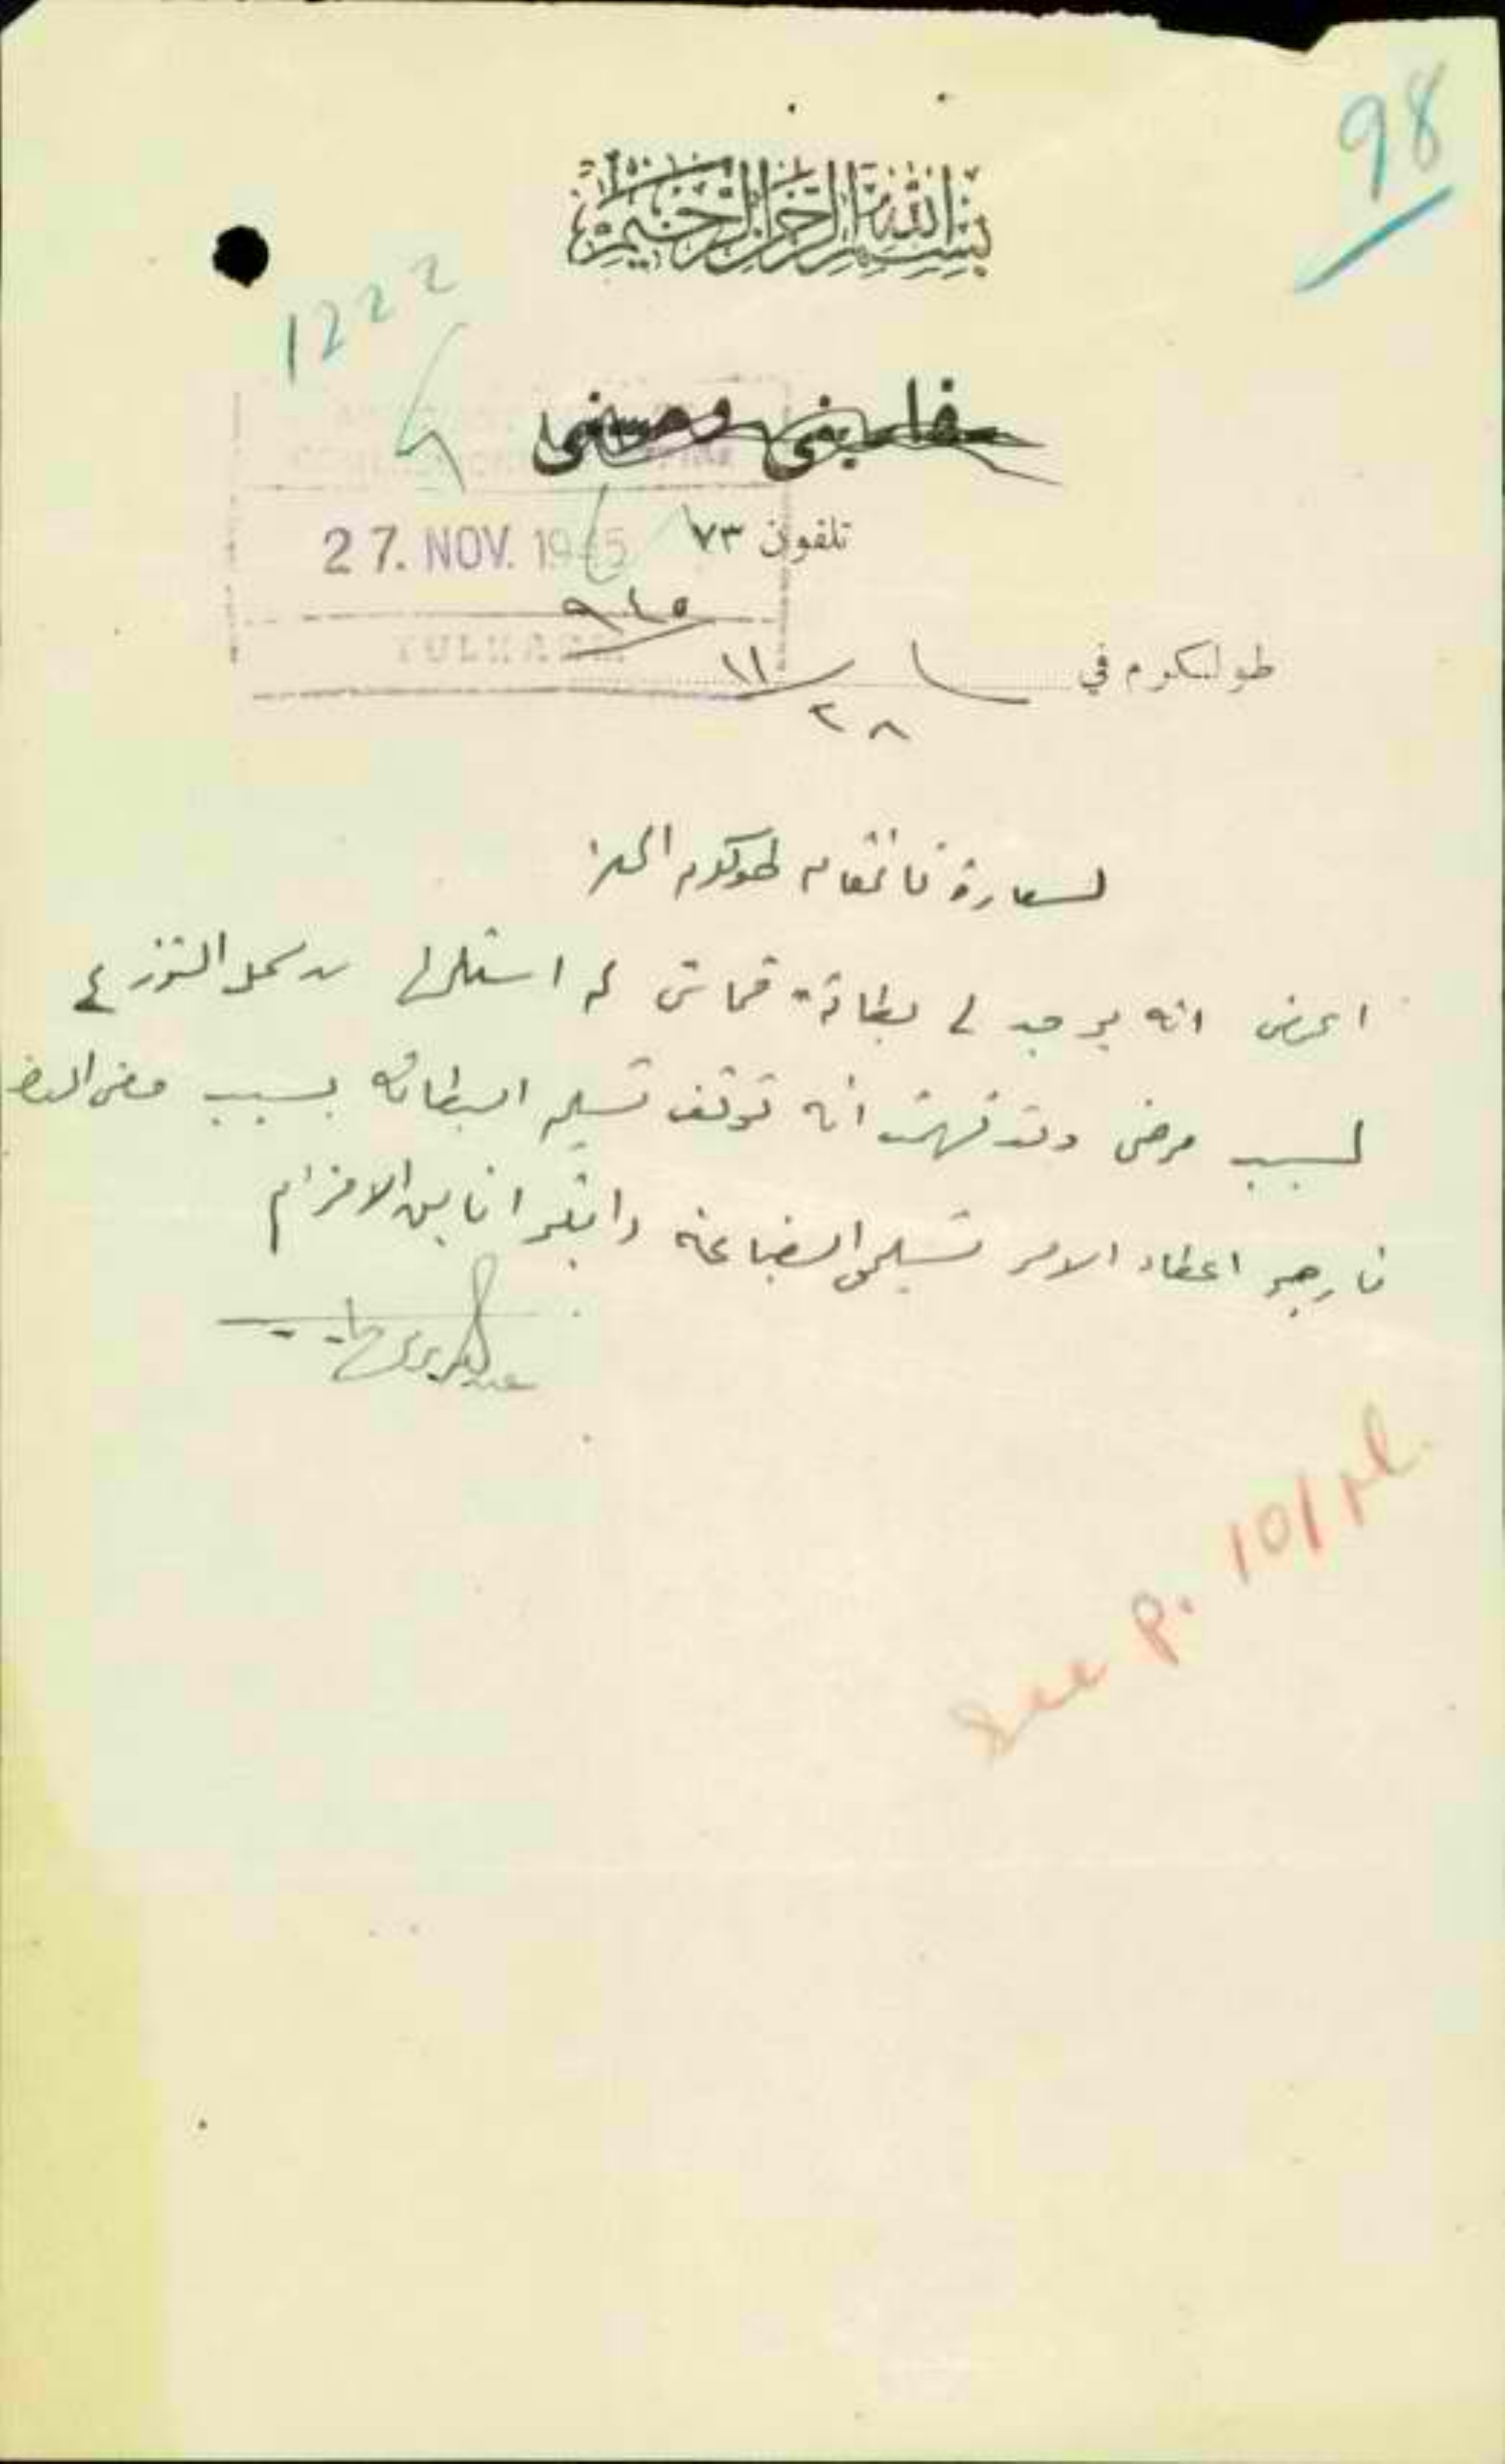 98
بسم الله الرحمن الرحيم
1222
تلفون ٧٣
27. NOV. 1945
TULKARM
٩٤٥
طولكرم في ٢٨/١١
لسعادة قائمقام طولكرم المحترم
اعرض انه يوجد لي بطاقة قماش لم استلمها من محل التوزيع
لسبب مرضي وقد فهمت انه توقف تسليم البطاقه بسبب مضي المدة
فارجو اعطاء الامر تسليمي البضاعة واقبلوا فايق الاحترام
see p. 101 pl.